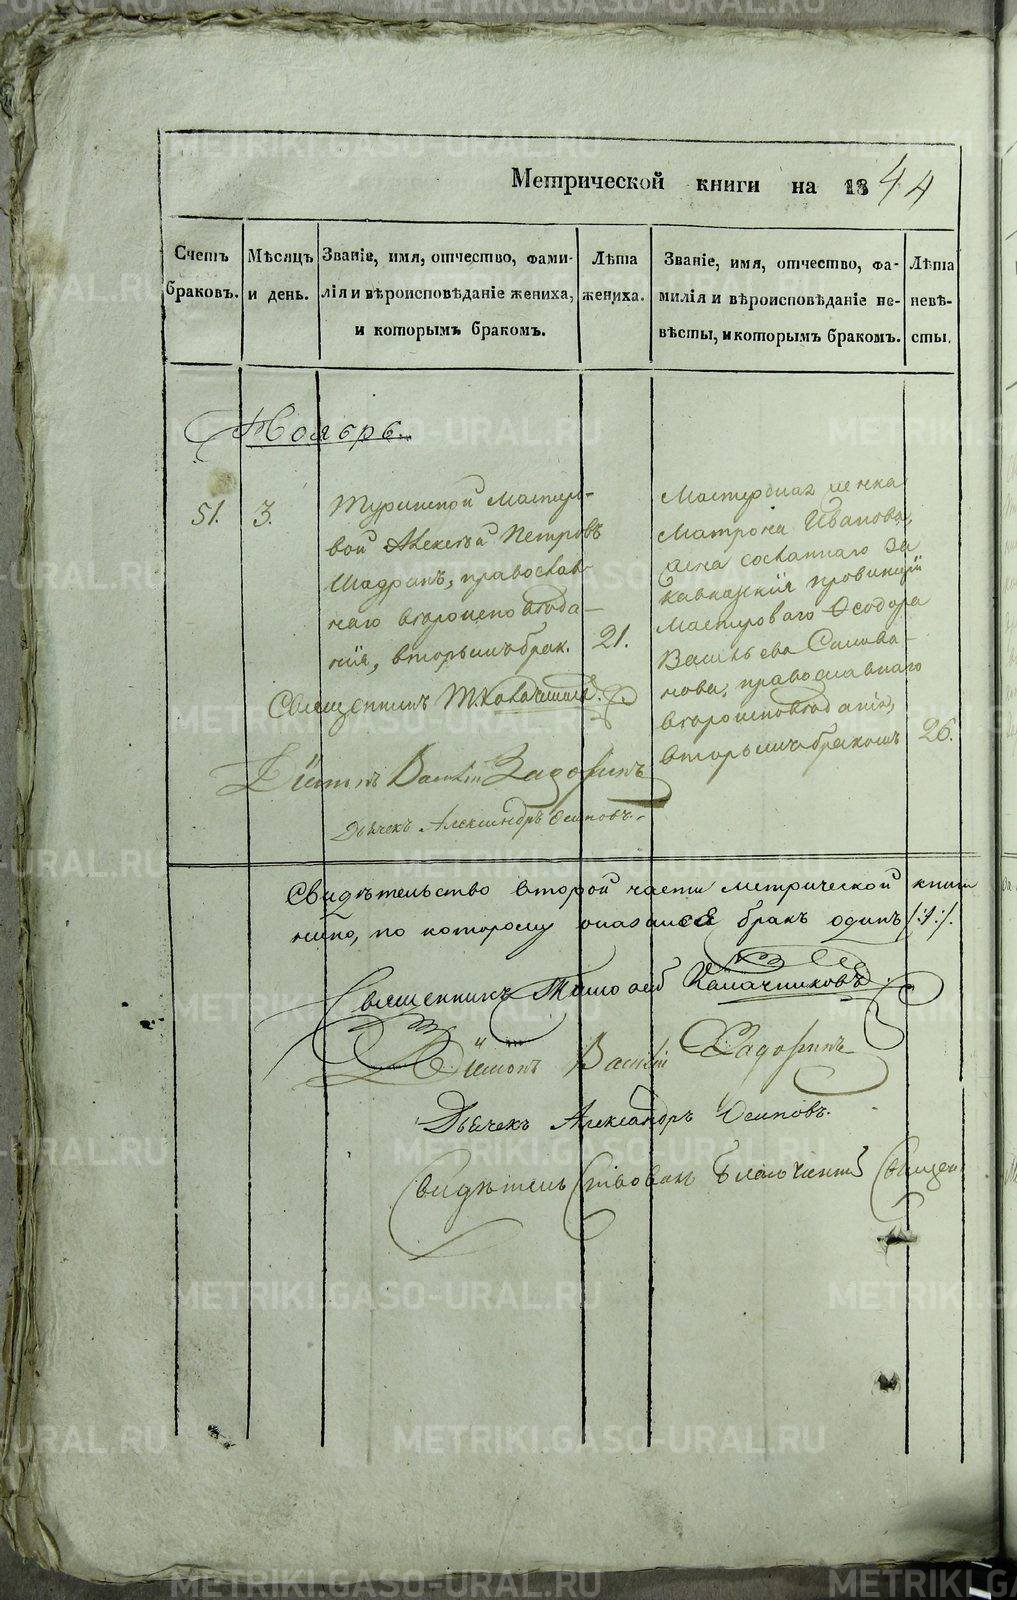 Метрической книги на 1844
Счетъ браковъ.
Мѣсяцъ и день.
Званіе, имя, отчество, фами-
лія и вѣроисповѣданіе жениха,
и которымъ бракомъ.
Лѣта жениха.
Званіе, имя, отчество, фа-
милія и вѣроисповѣданіе не-
вѣсты, и которымъ бракомъ.
Лѣта невѣ-
сты.
Ноябрь.
51.
3.
Туринской Мастеро-
вой Алексѣй Петровъ
Шадринъ, православ-
наго вѣроисповѣда-
нія, вторымъ брак.
21.
Мастерская женка
Матрона Иванова,
жена сосланнаго За
кавказскія провинціи
Мастероваго Ѳеодора
Васильева
православнаго
вѣроисповѣданія,
вторымъ бракомъ
26.
Священникъ Т. Калачниковъ.
Діаконъ Василій Задоринъ
Дьячекъ Александръ Осиповъ.
Свидѣтельство второй части метрической книги
по которому оказался бракъ одинъ /:1:/.
Священникъ Тимоѳей Калачниковъ
Діаконъ Василій Задоринъ
Дьячекъ Александръ Осиповъ.
METRIKI.GASO-URAL.RU